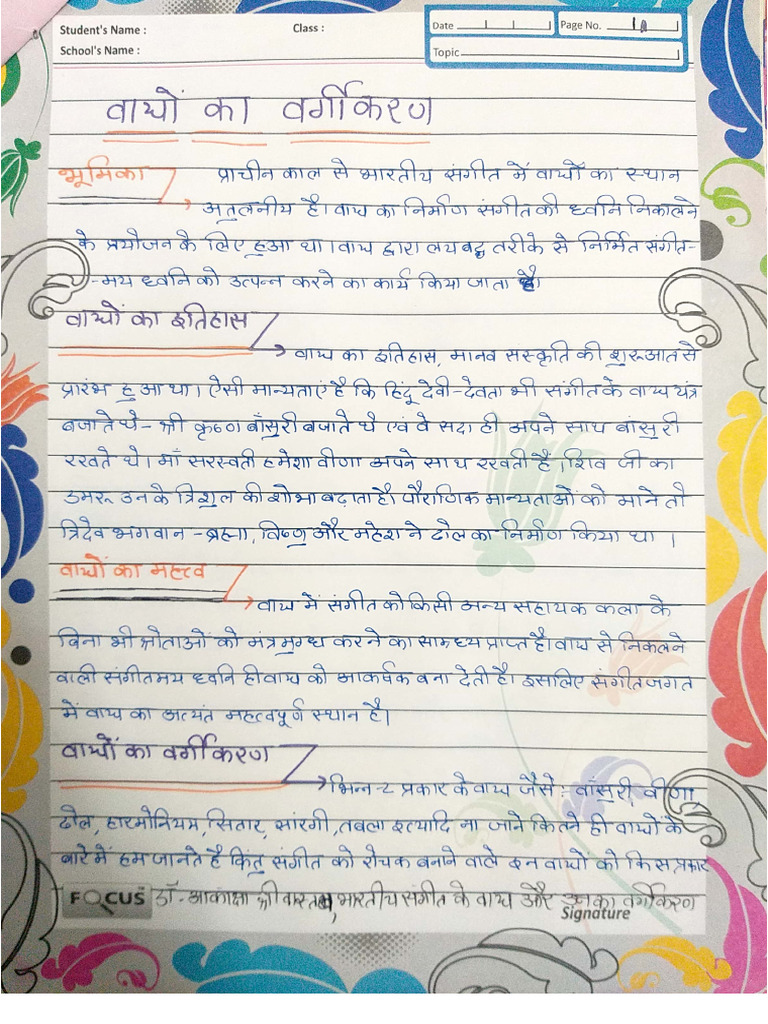 Student's Name : Class : Date Page No. 1
School's Name : Topic
वाद्यों का वर्गीकरण
भूमिका प्राचीन काल से भारतीय संगीत में वाद्यों का स्थान
अतुलनीय है। वाद्य का निर्माण संगीत की ध्वनि निकालने
के प्रयोजन के लिए हुआ था। वाद्य द्वारा लयबद्ध तरीके से निर्मित संगीत-
-मय ध्वनि को उत्पन्न करने का कार्य किया जाता है।
वाद्यों का इतिहास
वाद्य का इतिहास, मानव संस्कृति की शुरूआत से
प्रारंभ हुआ था। ऐसी मान्यताएं है कि हिंदू देवी-देवता भी संगीत के वाद्य यंत्र
बजाते थे- श्री कृष्ण बाँसुरी बजाते थे एवं वे सदा ही अपने साथ बांसुरी
रखते थे। माँ सरस्वती हमेशा वीणा अपने साथ रखती है। शिव जी का
डमरू उनके त्रिशुल की शोभा बढ़ाता है। पौराणिक मान्यताओं को माने तो
त्रिदेव भगवान - ब्रह्मा, विष्णु और महेश ने ढोल का निर्माण किया था ।
वाद्यों का महत्व
वाद्य में संगीत को किसी अन्य सहायक कला के
बिना भी श्रोताओं को मंत्रमुग्ध करने का सामर्थ्य प्राप्त है। वाद्य से निकलने
वाली संगीतमय ध्वनि ही वाद्य को आकर्षक बना देती है। इसलिए संगीत जगत
में वाद्य का अत्यंत महत्वपूर्ण स्थान है।
वाद्यों का वर्गीकरण
भिन्न-२ प्रकार के वाद्य जैसे : बाँसुरी, वीणा,
ढोल, हारमोनियम, सितार, सारंगी, तबला इत्यादि ना जाने कितने ही वाद्यों के
बारे में हम जानते है किंतु संगीत को रोचक बनाने वाले इन वाद्यों को किस प्रकार
FOCUS डॉ- आकांक्षा श्रीवास्तव, भारतीय संगीत के वाद्य और उनका वर्गीकरण
Signature